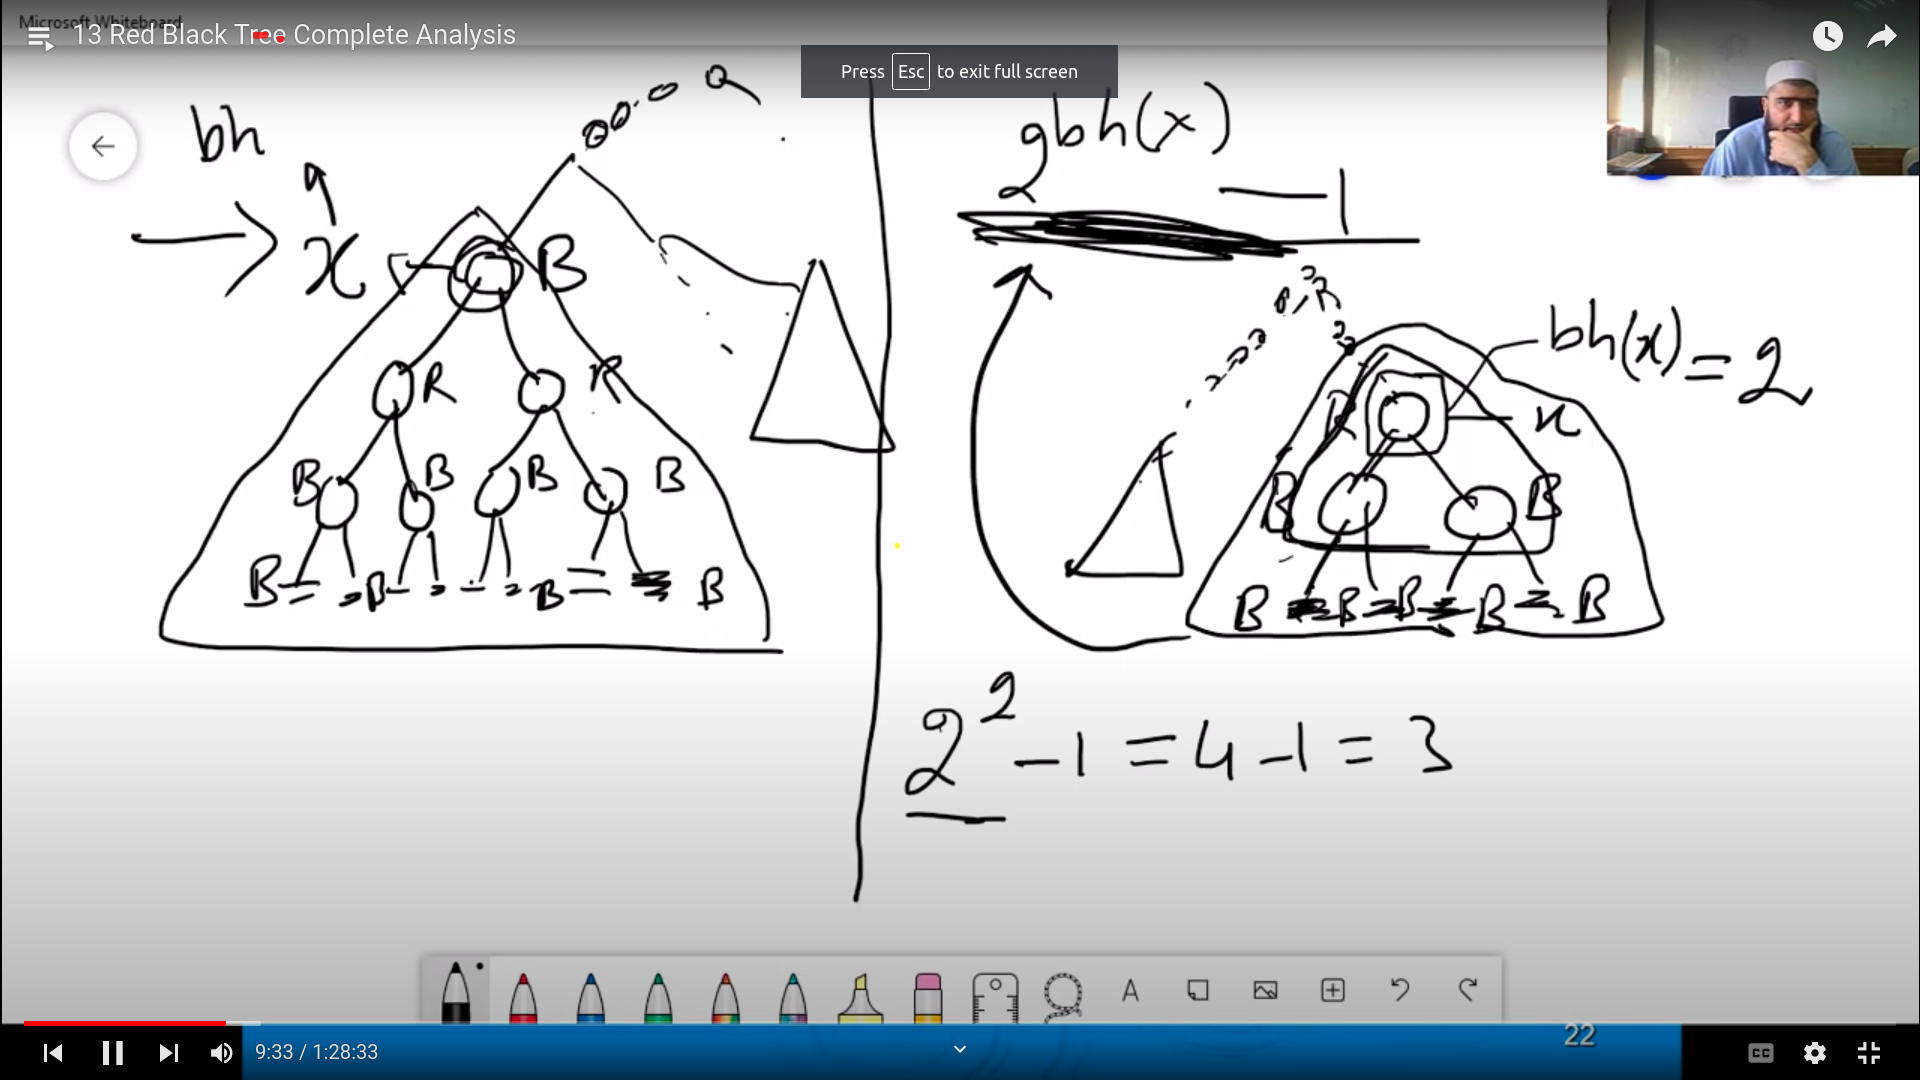 Microsoft Whiteboard
13 Red Black Tree Complete Analysis
Press Esc to exit full screen
bh
x
B
R R
B B B B
B B B B
2bh(x) - 1
R
bh(x) = 2
x
B B
B B B B B
2² - 1 = 4 - 1 = 3
A
22
9:33 / 1:28:33
CC